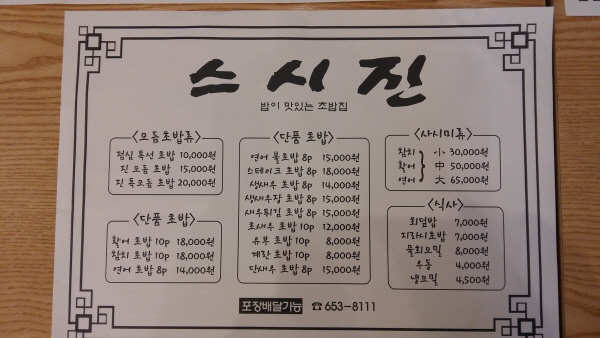 스시진
밥이 맛있는 초밥집
<모듬초밥류>
점심 특선 초밥 10,000원
진 모듬 초밥 15,000원
진 특모듬 초밥 20,000원
<단품 초밥>
활어 초밥 10p 18,000원
참치 초밥 10p 18,000원
연어 초밥 8p 14,000원
<단품 초밥>
연어 불초밥 8p 15,000원
스테이크 초밥 8p 18,000원
생새우 초밥 8p 14,000원
생새우장 초밥 8p 15,000원
새우튀김 초밥 8p 15,000원
초새우 초밥 10p 12,000원
유부 초밥 10p 8,000원
계란 초밥 10p 8,000원
단새우 초밥 8p 15,000원
<사시미류>
참치 小 30,000원
활어 中 50,000원
연어 大 65,000원
<식사>
회덮밥 7,000원
지라시초밥 7,000원
물회모밀 8,000원
우동 4,000원
냉모밀 4,500원
포장배달가능 ☎653-8111